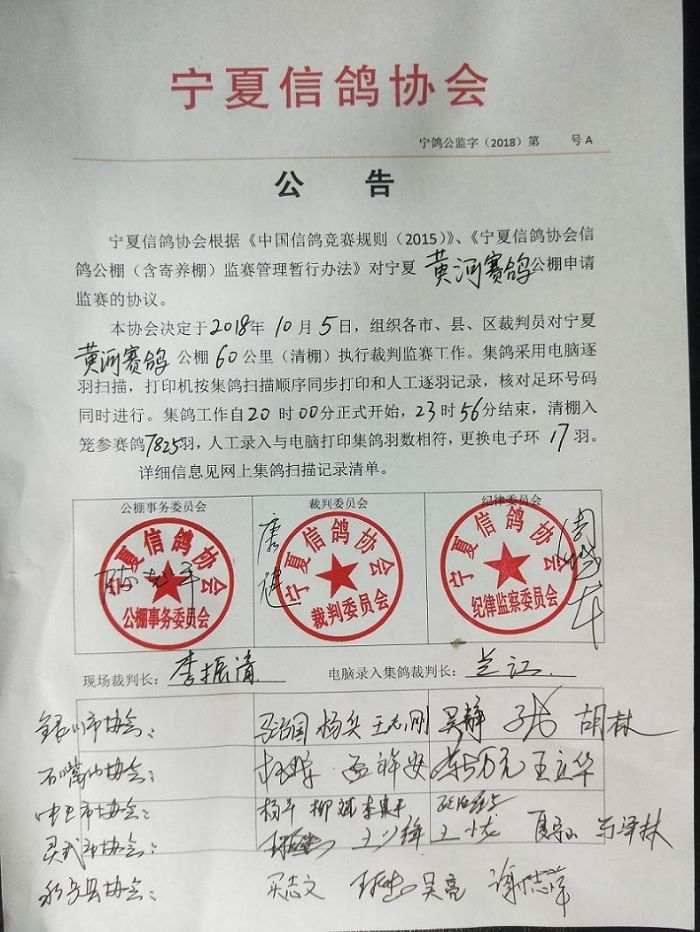 宁夏信鸽协会
宁鸽公监字（2018）第 号A
公 告
宁夏信鸽协会根据《中国信鸽竞赛规则（2015）》、《宁夏信鸽协会信
鸽公棚（含寄养棚）监赛管理暂行办法》对宁夏 黄河赛鸽公棚申请
监赛的协议。
本协会决定于2018年 10月 5日，组织各市、县、区裁判员对宁夏
黄河赛鸽 公棚 60公里（清棚）执行裁判监赛工作。集鸽采用电脑逐
羽扫描，打印机按集鸽扫描顺序同步打印和人工逐羽记录，核对足环号码
同时进行。集鸽工作自20 时 00分正式开始，23时56分结束，清棚入
笼参赛鸽7825羽，人工录入与电脑打印集鸽羽数相符，更换电子环 17 羽。
详细信息见网上集鸽扫描记录清单。
公棚事务委员会 裁判委员会 纪律委员会
宁夏信鸽协会 公棚事务委员会
康健
宁夏信鸽协会 裁判委员会
宁夏信鸽协会 纪律监察委员会
现场裁判长：李振清 电脑录入集鸽裁判长：兰江
银川市协会： 马治国 王志刚 吴静 胡林
石嘴山协会： 孟祥安 王立华
中卫市协会： 杨军 柳斌
灵武市协会： 马泽林
永宁县协会： 买志文 吴亮 谢志萍